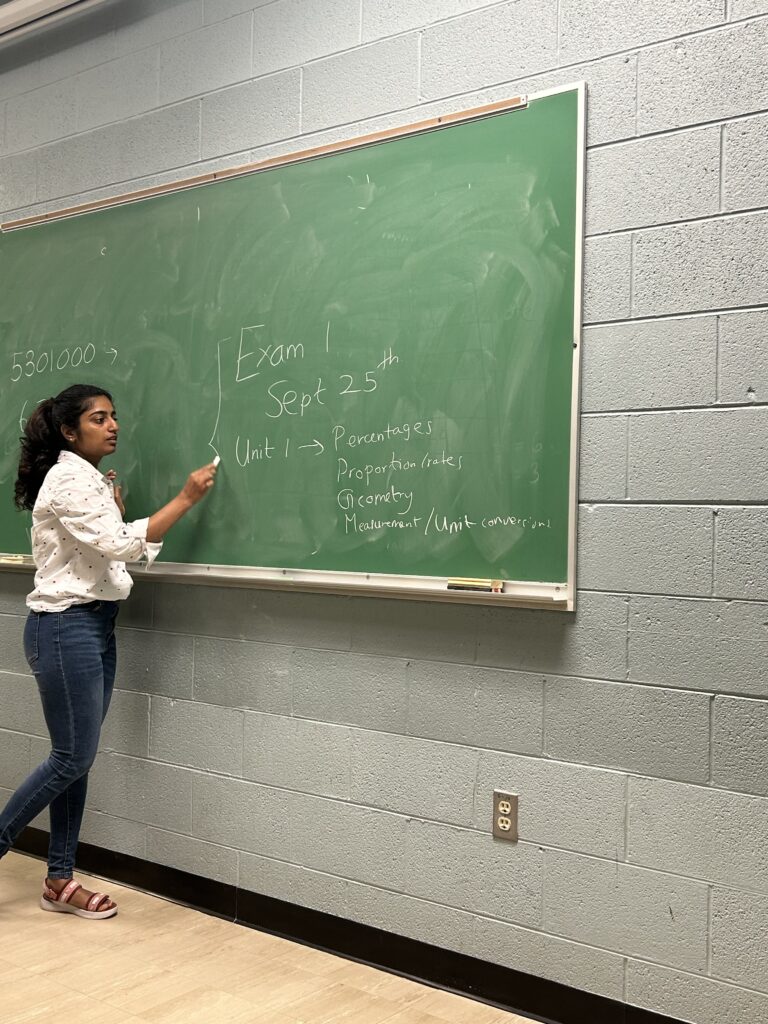 5301000 →
Exam 1
Sept 25th
Unit 1 → Percentages
Proportion/rates
Geometry
Measurement/Unit conversions